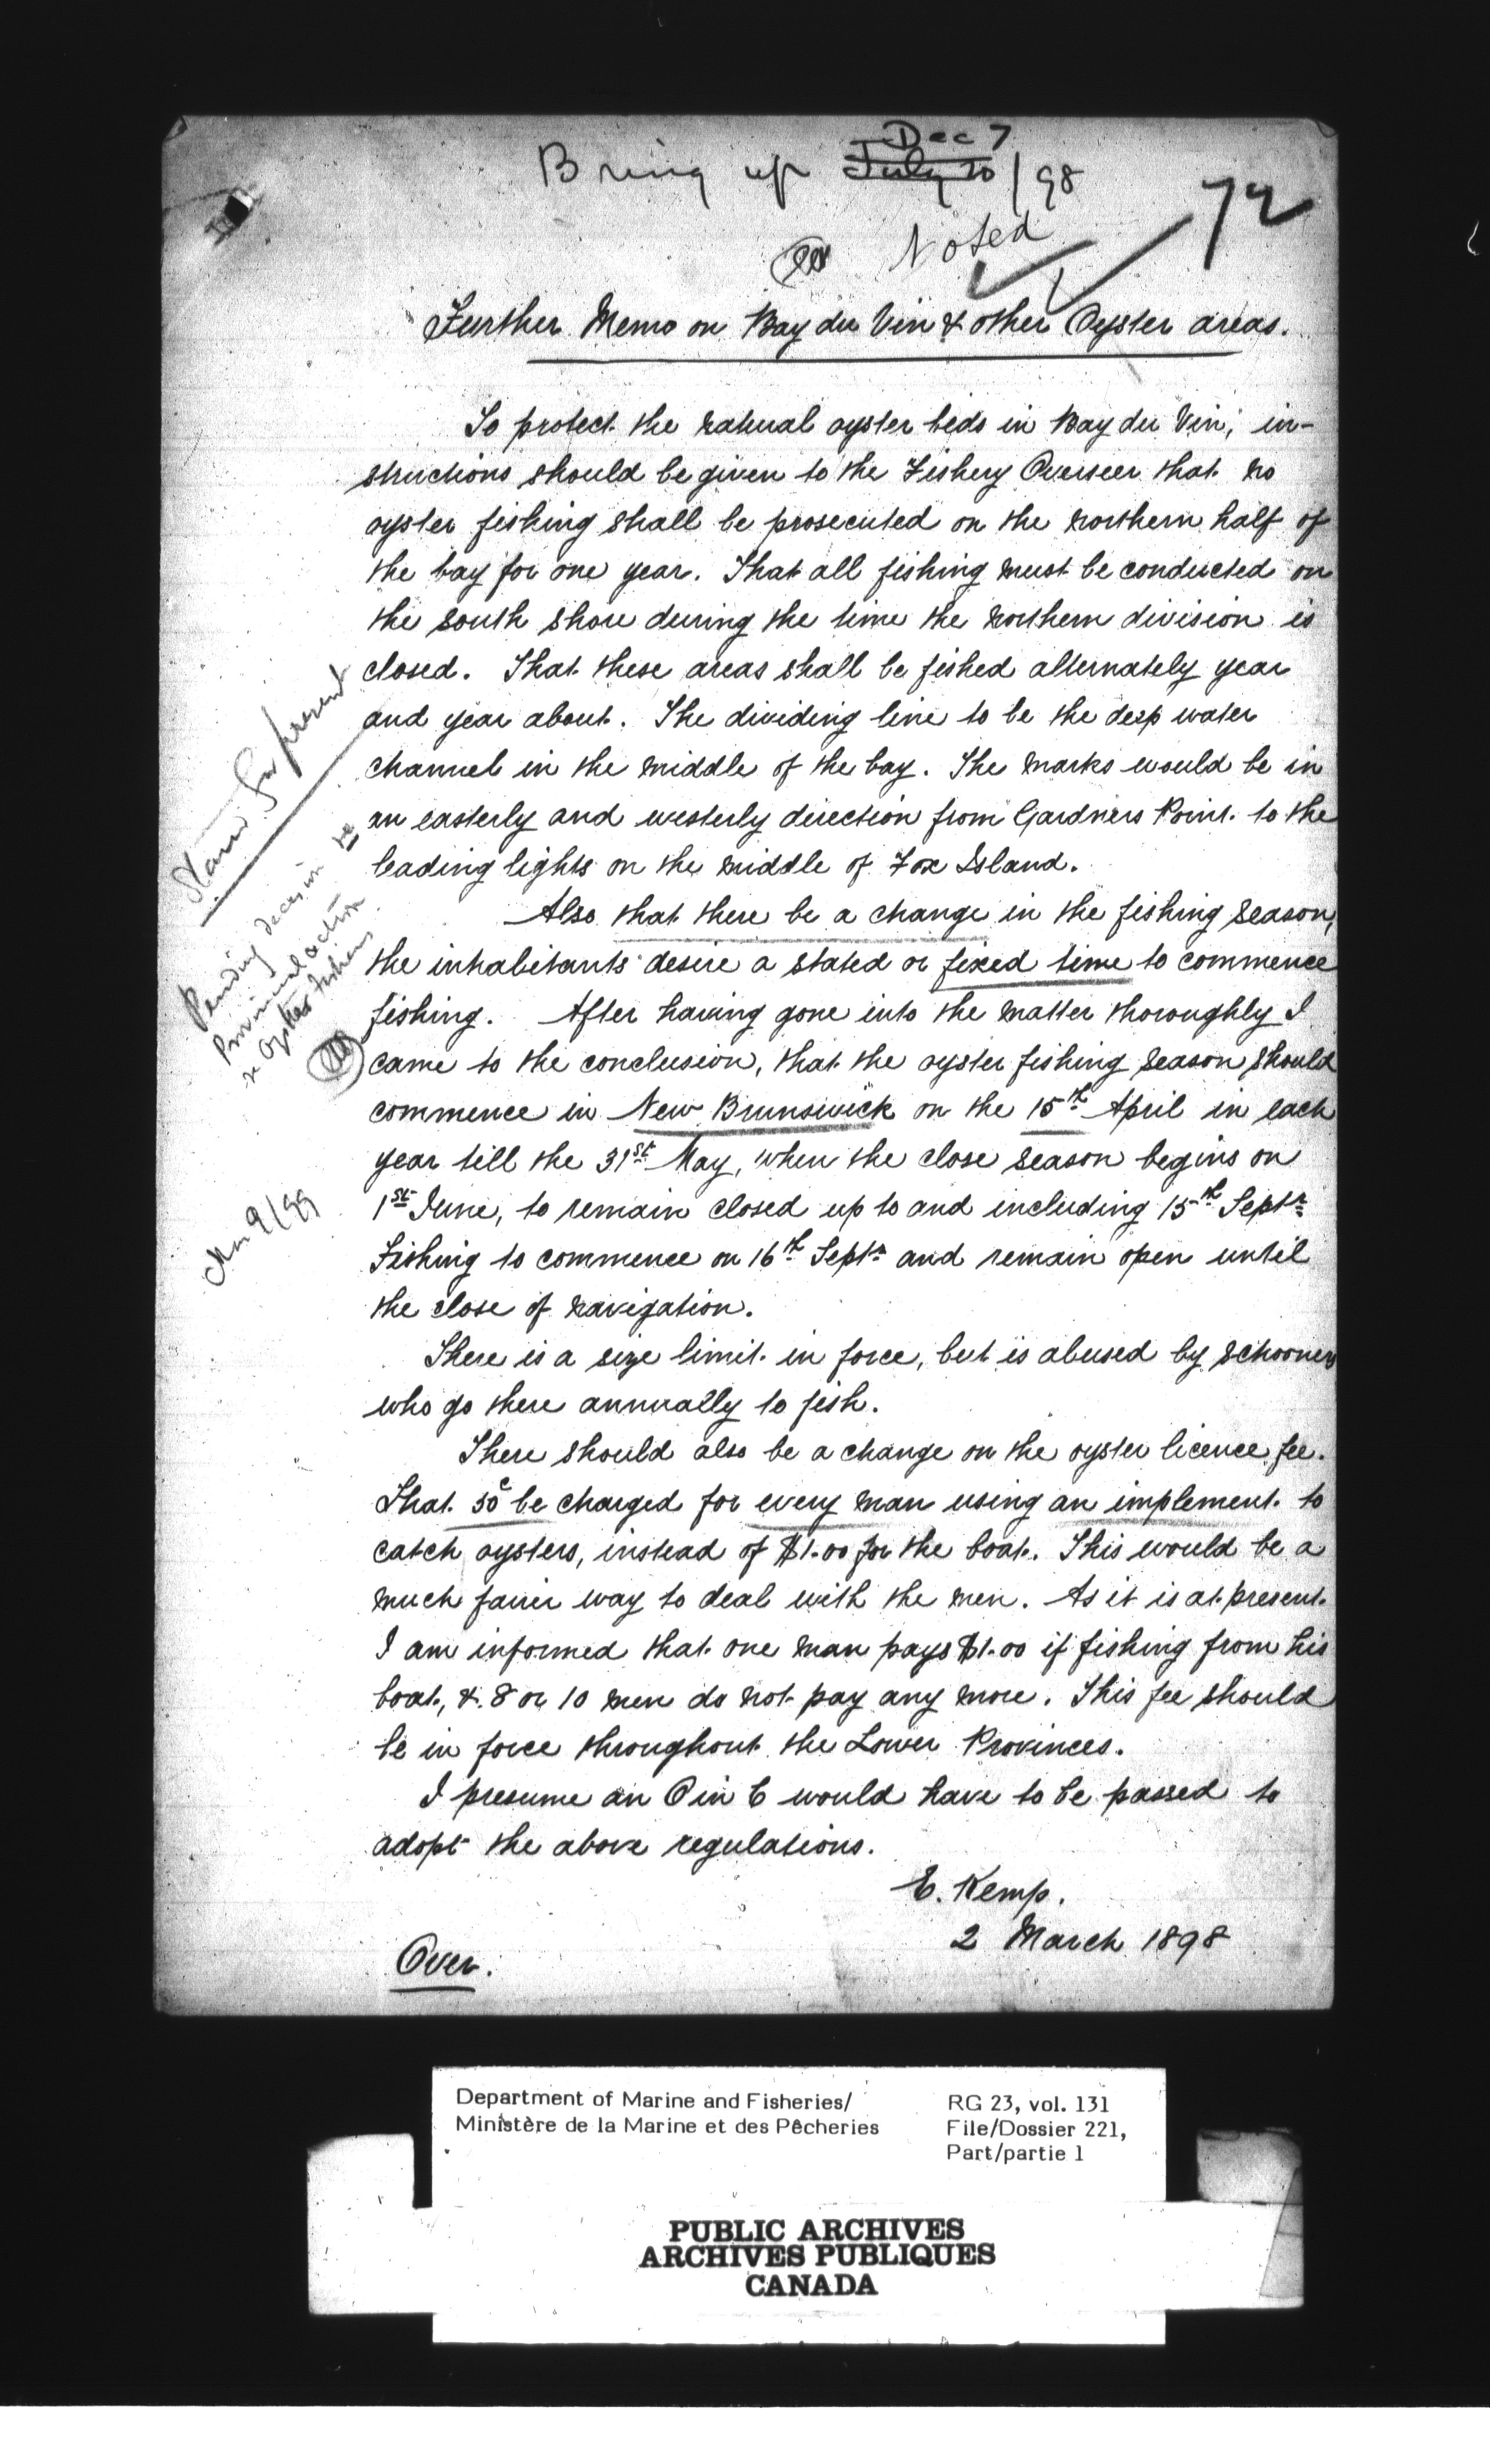 Dec 7
Bring up July 20/98
Noted
72
Further Memo on Bay du Vin & other Oyster areas.
To protect the natural oyster beds in Bay du Vin, in-
structions should be given to the Fishery Overseer that no
oyster fishing shall be prosecuted on the northern half of
the bay for one year. That all fishing must be conducted on
the south shore during the time the northern division is
closed. That these areas shall be fished alternately year
and year about. The dividing line to be the deep water
channel in the middle of the bay. The marks would be in
an easterly and westerly direction from Gardners Point to the
leading lights on the middle of Fox Island.
Also that there be a change in the fishing season,
the inhabitants desire a stated or fixed time to commence
fishing. After having gone into the matter thoroughly I
came to the conclusion, that the oyster fishing season should
commence in New Brunswick on the 15th April in each
year till the 31st May, when the close season begins on
1st June, to remain closed up to and including 15th Septr
Fishing to commence on 16th Septr and remain open until
the close of navigation.
There is a size limit in force, but is abused by schooners
who go there annually to fish.
There should also be a change on the oyster licence fee.
That 50c be charged for every man using an implement to
catch oysters, instead of $1.00 for the boat. This would be a
much fairer way to deal with the men. As it is at present
I am informed that one man pays $1.00 if fishing from his
boat, & 8 or 10 men do not pay any more. This fee should
be in force throughout the Lower Provinces.
I presume an O in C would have to be passed to
adopt the above regulations.
E. Kemp.
2 March 1898
Over.
Stand for present
Pending decision re
Provincial action
re Oyster fisheries
9/99
Department of Marine and Fisheries/
Ministère de la Marine et des Pêcheries
RG 23, vol. 131
File/Dossier 221,
Part/partie 1
PUBLIC ARCHIVES
ARCHIVES PUBLIQUES
CANADA